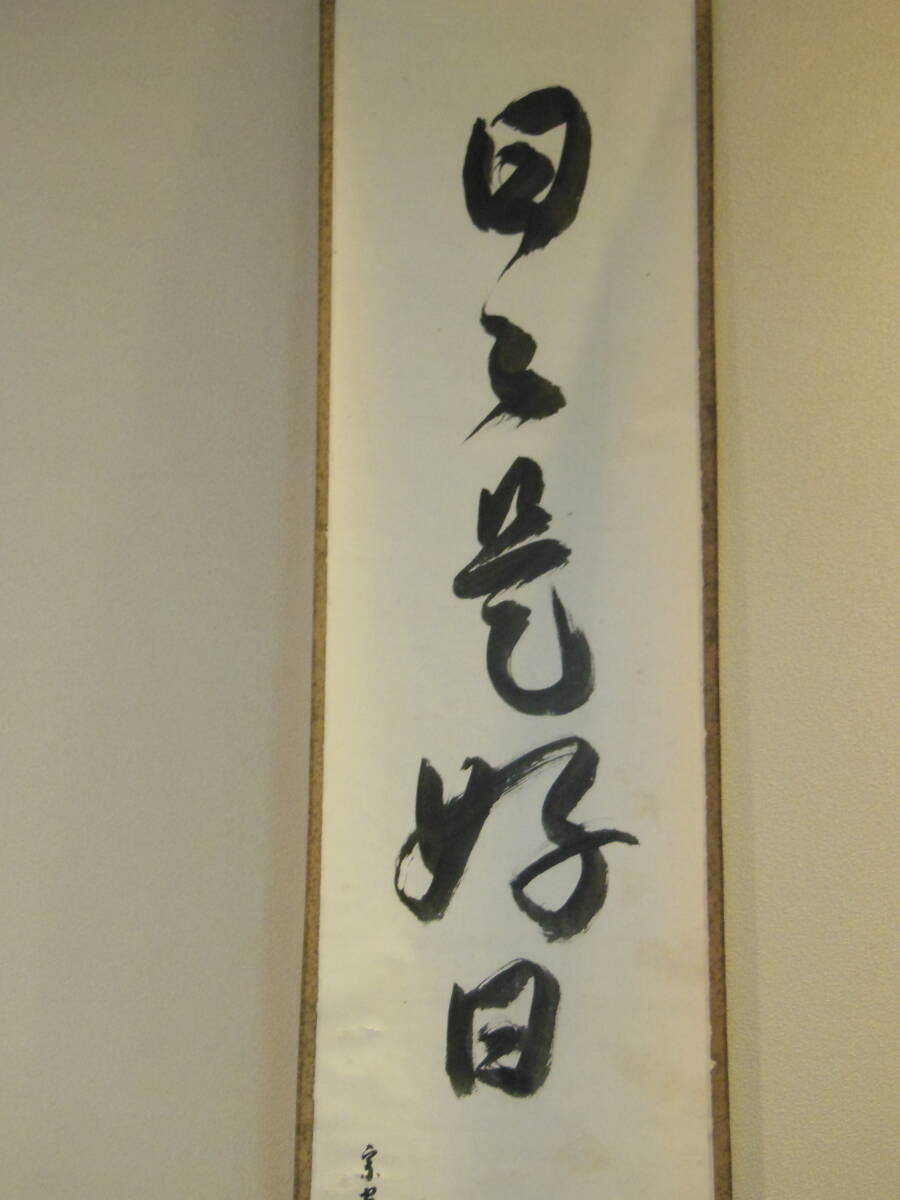 日々是好日
宗